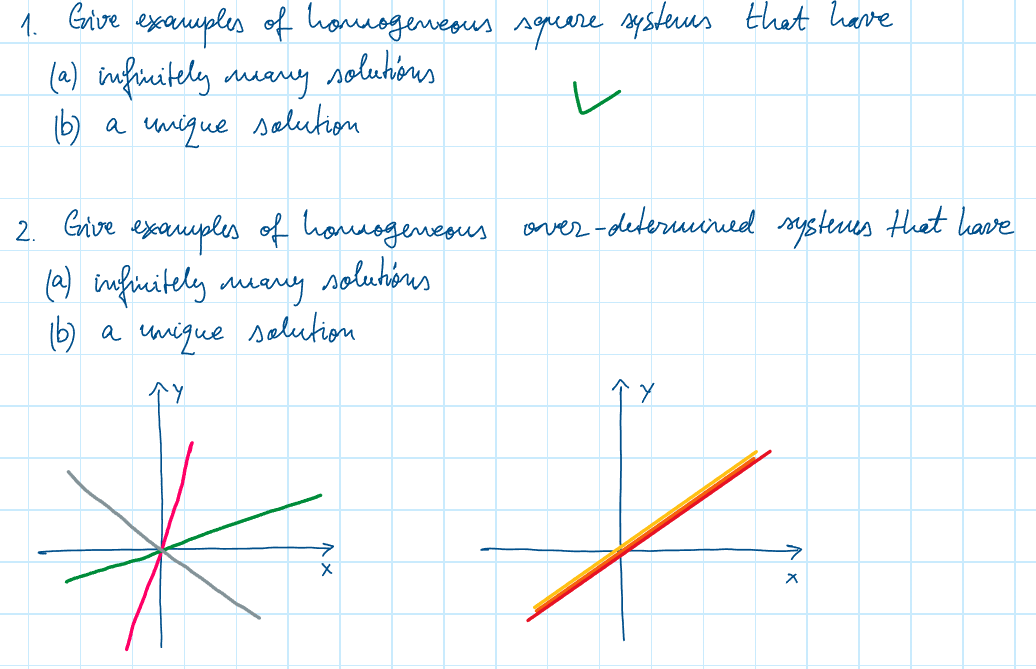 1. Give examples of homogeneous square systems that have
(a) infinitely many solutions
(b) a unique solution
2. Give examples of homogeneous over-determined systems that have
(a) infinitely many solutions
(b) a unique solution
y
y
x
x